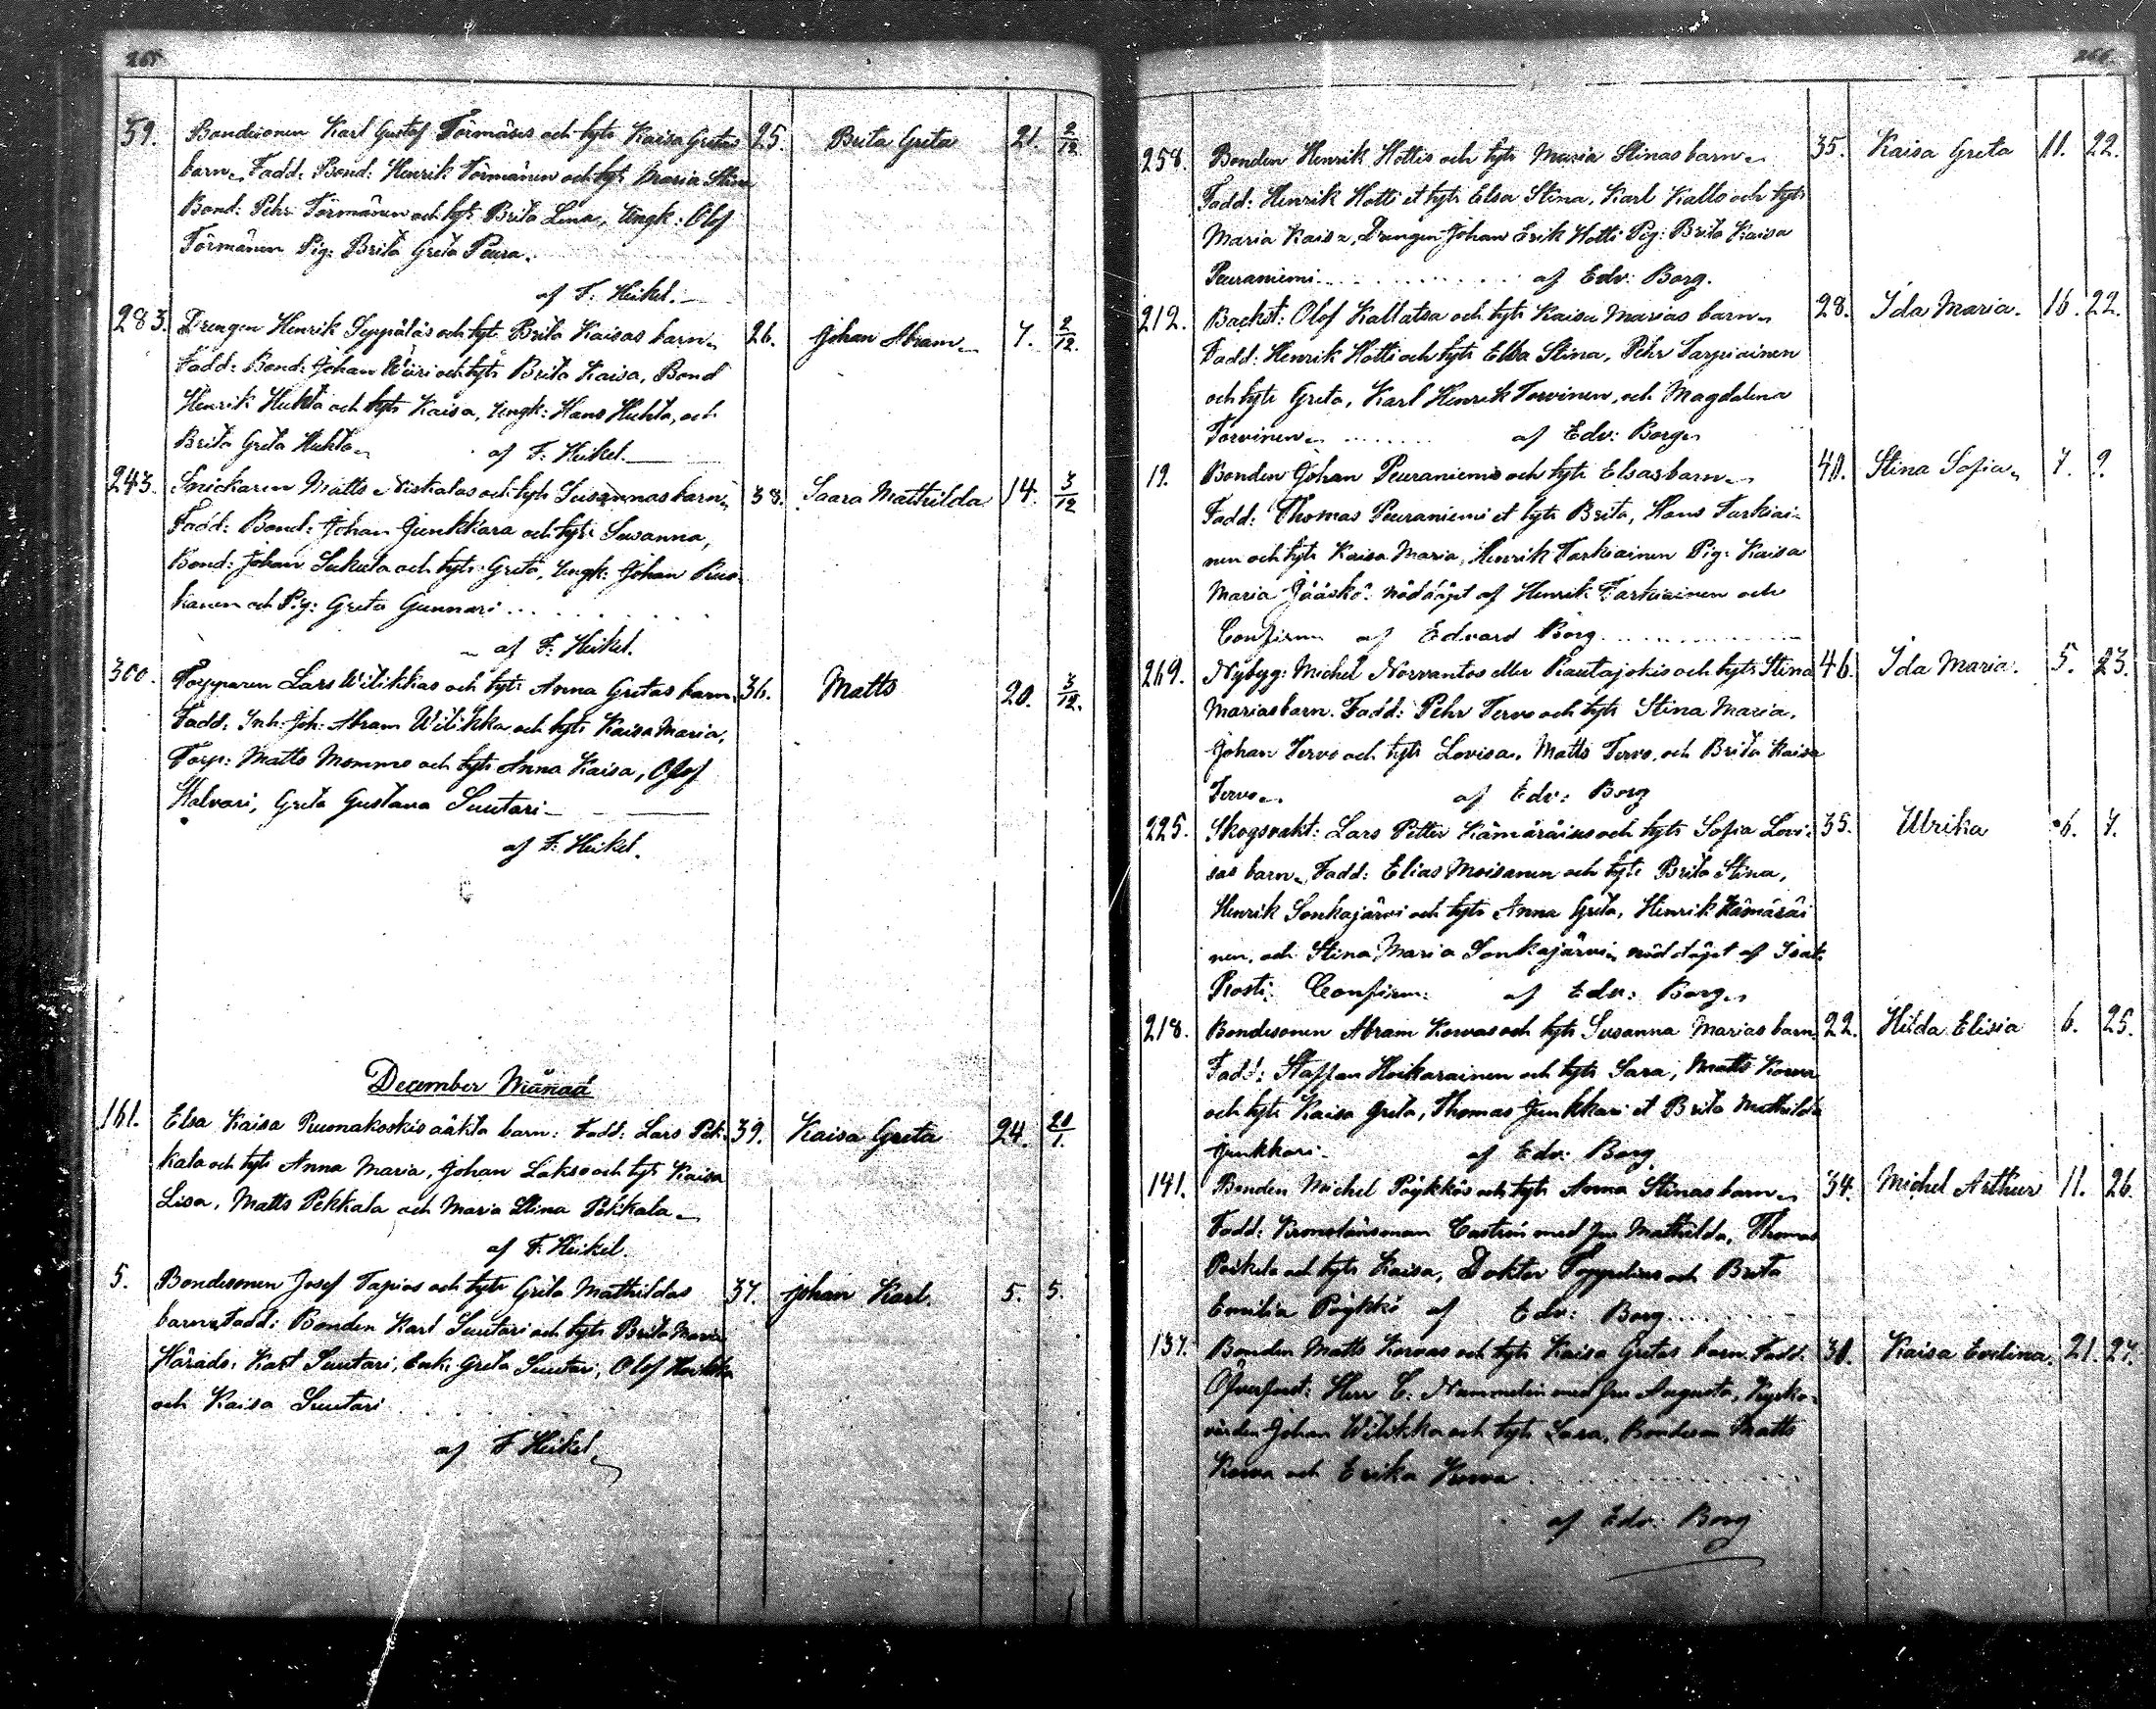 265
59. Bondesonen Karl Gustaf Törmäses och hytr Kaisa Gretas 25. Brita Greta 21. 2/12
barn. Fadd: Bond: Henrik Törmänen och hytr Maria Stina
Bond: Pehr Törmänen och hytr Brita Lena, Ungk: Olof
Törmänen Pig: Brita Greta Peura.
af F. Heikel.
283. Drengen Henrik Seppäläs och hytr Brita Kaisas barn. 26. Johan Abram. 7. 2/12.
Fadd: Bond: Johan och hytr Brita Kaisa, Bond
Henrik Huhta och hytr Kaisa, Ungk: Hans Huhta, och
Brita Greta Huhta. af F. Heikel.
243. Snickaren Matts Niskalas och hytr Susannas barn. 38. Saara Mathilda 14. 3/12
Fadd: Bond: Johan Junkkara och hytr Susanna,
Bond: Johan Sukula och hytr Greta, Ungk: Johan
kanen och Pig: Greta Gunnari
af F. Heikel.
300. Torpparen Lars Wilikkas och hytr Anna Gretas barn. 36. Matts 20. 3/12.
Fadd: Inh: Joh: Abram Wilikka och hytr Kaisa Maria,
Torp: Matts Mommo och hytr Anna Kaisa, Olof
Halvari, Greta Gustava Suutari
af F. Heikel.
December Månad
161. Elsa Kaisa Ruonakoskis oäkta barn: Fadd: Lars Pek- 39. Kaisa Greta 24. 20/1.
kala och hytr Anna Maria, Johan Lakso och hytr Kaisa
Lisa, Matts Pekkala och Maria Stina Pekkala
af F. Heikel.
5. Bondesonen Josef Tapios och hytr Greta Mathildas 37. Johan Karl. 5. 5.
barn. Fadd: Bonden Karl Suutari och hytr Brita Maria
Härads: Karl Suutari, Enk: Greta Suutari, Olof
och Kaisa Suutari
af F Heikel
266.
258. Bonden Henrik Hottis och hytr Maria Stinas barn. 35. Kaisa Greta 11. 22.
Fadd: Henrik Hotti et hytr Elsa Stina, Karl Kallo och hytr
Maria Kaisa, Drengen Johan Erik Hotti Pig: Brita Kaisa
Peuraniemi. af Edv: Borg.
212. Backst: Olof Kallatsa och hytr Kaisa Marias barn. 28. Ida Maria. 16. 22.
Fadd: Henrik Hotti och hytr Elsa Stina, Pehr Tarpiainen
och hytr Greta, Karl Henrik Torvinen, och Magdalena
Torvinen. af Edv: Borg.
19. Bonden Johan Peuraniemis och hytr Elsas barn. 40. Stina Sofia. 7. 9.
Fadd: Thomas Peuraniemi et hytr Brita, Hans Tarkiai-
nen och hytr Kaisa Maria, Henrik Tarkiainen Pig: Kaisa
Maria Jääskö. nöddöpt af Henrik Tarkiainen och
Confirm af Edvard Borg.
269. Nybyg: Michel Norvantos eller Rautajokis och hytr Stina 46. Ida Maria. 5. 23.
Marias barn. Fadd: Pehr Tervo och hytr Stina Maria,
Johan Tervo och hytr Lovisa, Matts Tervo, och Brita Kaisa
Tervo. af Edv: Borg
225. Skogsvakt: Lars Petter Kämäräises och hytr Sofia Lovi- 35. Ulrika 6. 7.
sas barn. Fadd: Elias Moisanen och hytr Brita Stina,
Henrik Sonkajärvi och hytr Anna Greta, Henrik Kämäräi
nen, och Stina Maria Sonkajärvi. nöddöpt af Isak
Rosti. Confirm: af Edv: Borg.
218. Bondesonen Abram Korvas och hytr Susanna Marias barn. 22. Hilda Elisia 6. 25.
Fadd: Staffan Hoikarainen och hytr Sara, Matts Korva
och hytr Kaisa Greta, Thomas Junkkari et Brita Mathilda
Junkkari. af Edv: Borg
141. Bonden Michel Pöykkös och hytr Anna Stinas barn. 34. Michel Arthur 11. 26.
Fadd: Kronolänsman Castrén med fru Mathilda, Thomas
Poikela och hytr Kaisa, Doktor Toppelius och Brita
Emilia Pöykkö af Edv: Borg
137. Bonden Matts Korvas och hytr Kaisa Gretas barn. Fadd: 30. Kaisa Evelina. 21. 27.
Öfverforst: Herr C: Nummelin med fru Augusta, Kyrko-
värden Johan Wilikka och hytr Sara, Bondeson Matts
Korva och Erika Korva
af Edv: Borg